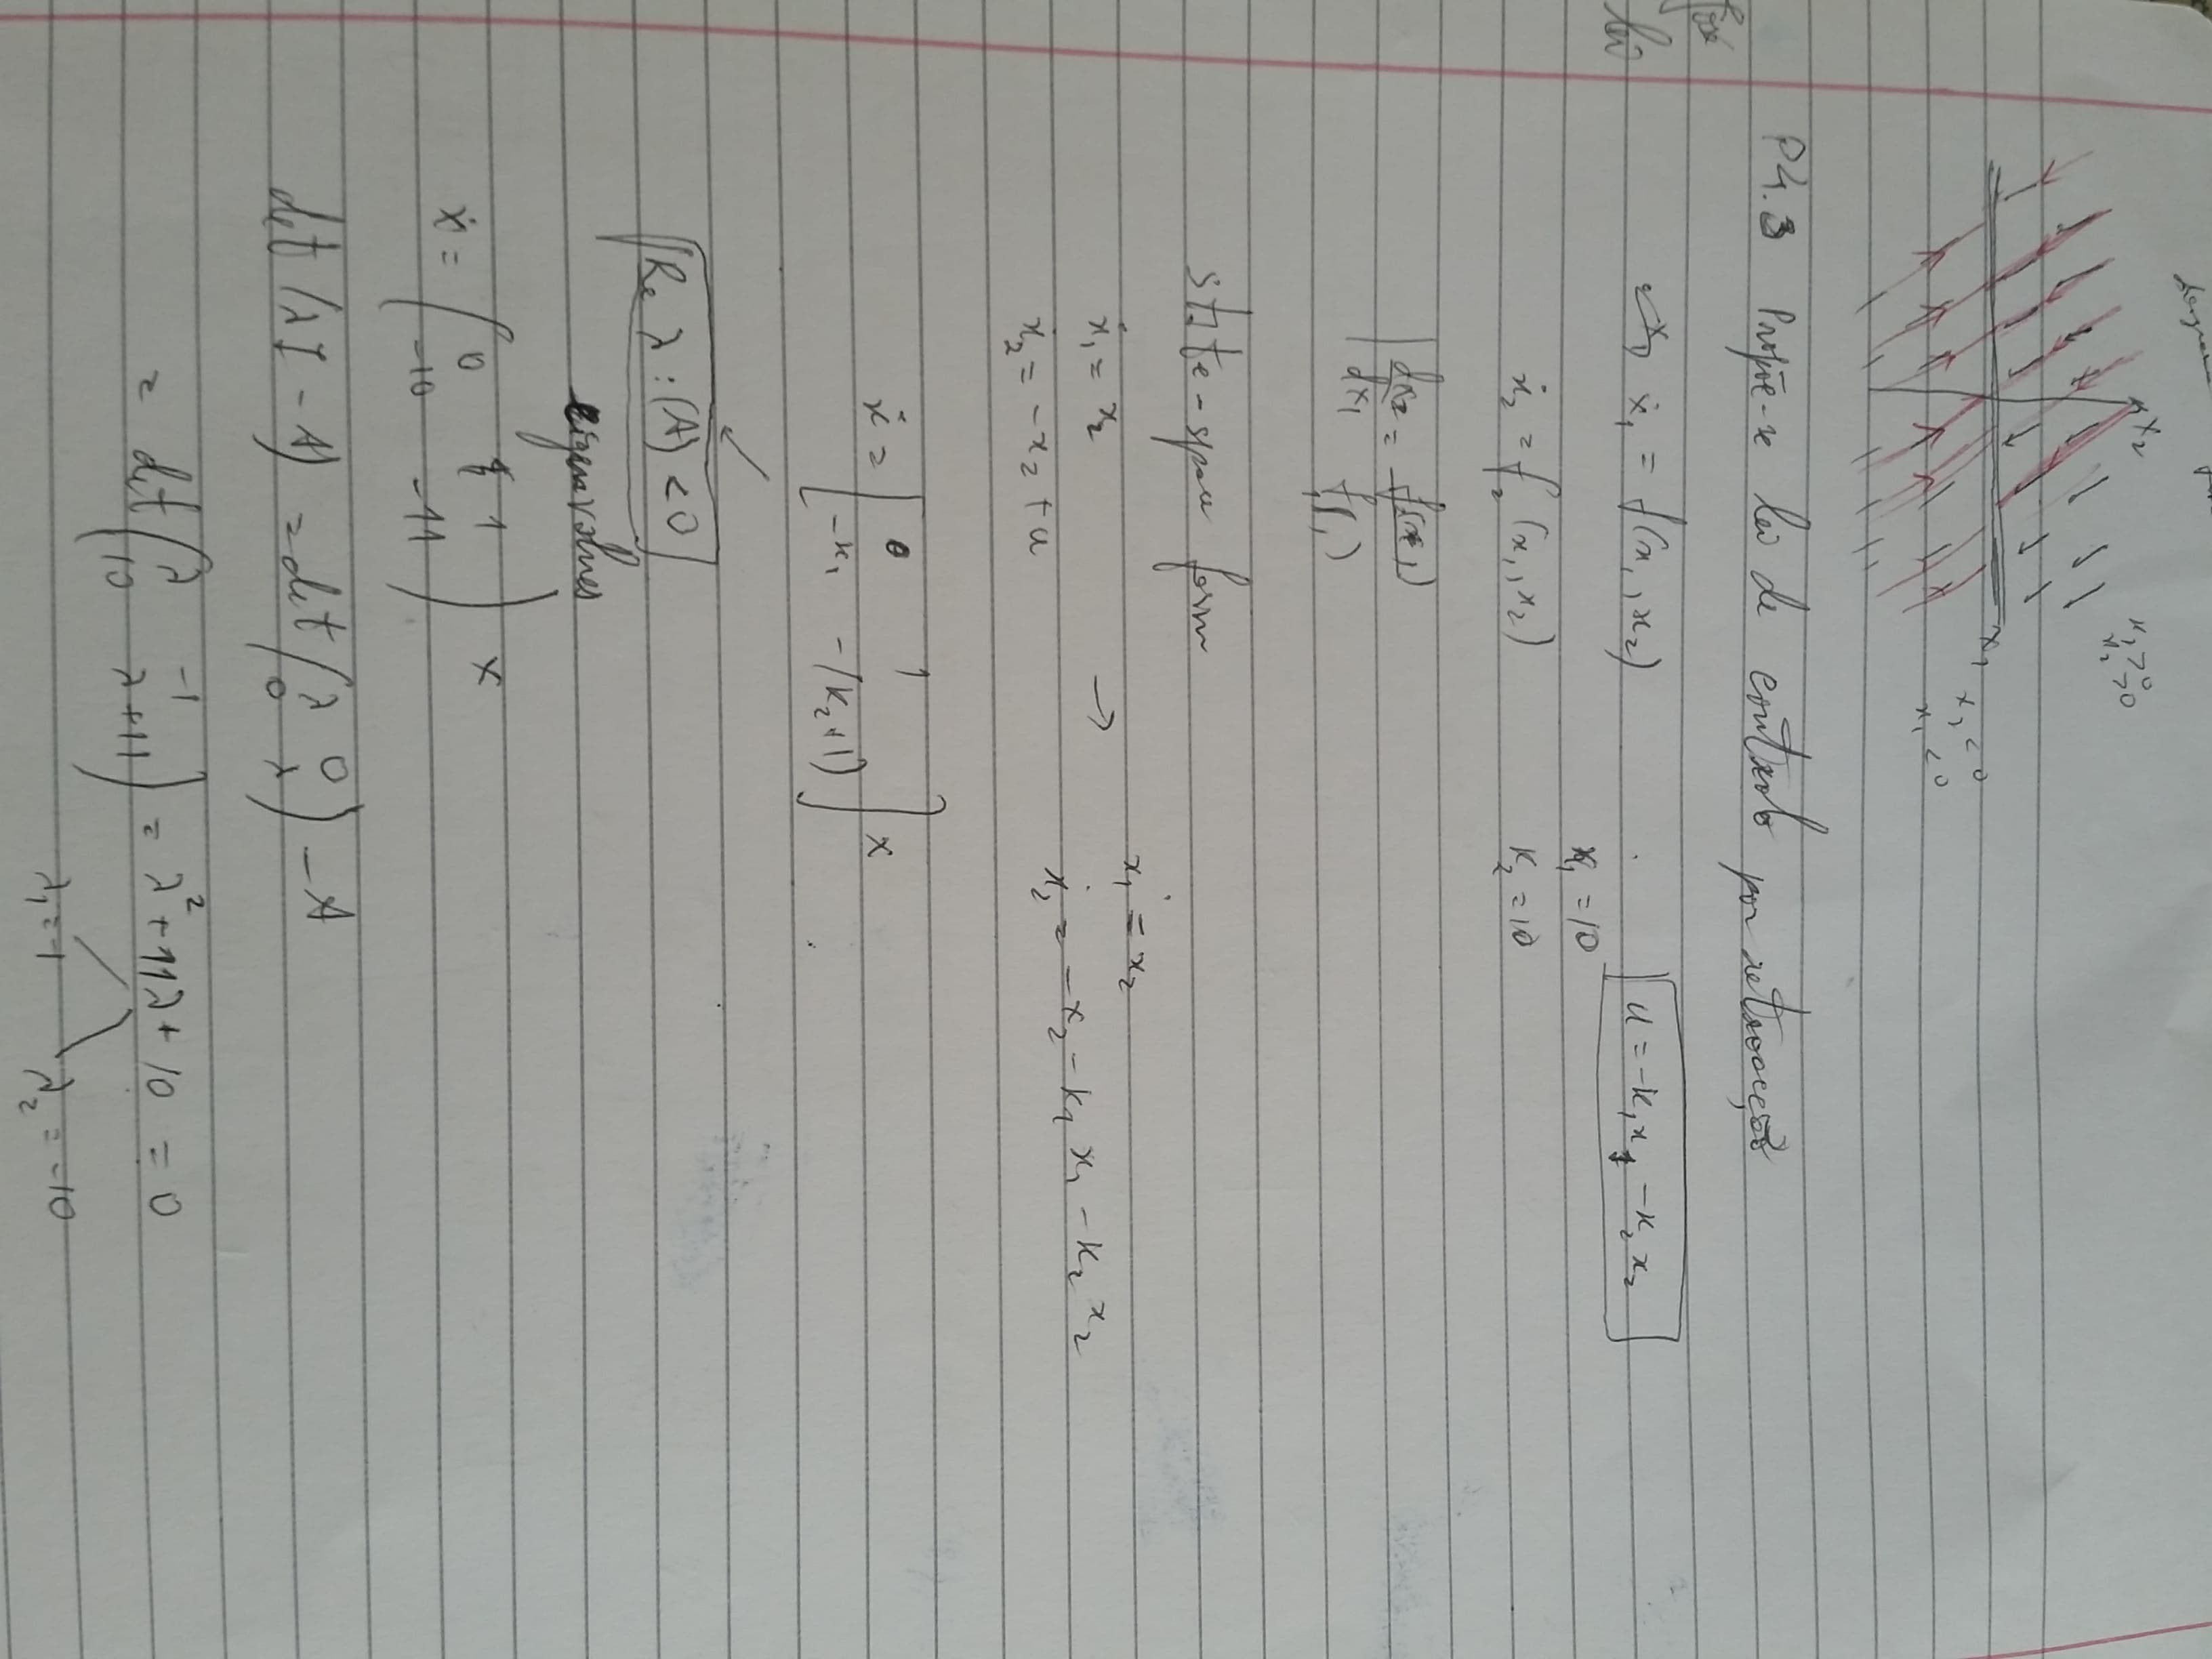 x₂
x₂ > 0
x₂ > 0
x₁
x₂ < 0
x₁ < 0
P4.3 Propõe-se lei de controlo por retroacção
lei
ẋ₁ = f(x₁, x₂)
u = -K₁x₁ - K₂x₂
K₁ = 10
ẋ₂ = f₂(x₁, x₂)
K₂ = 10
dx₂/dx₁ =
state-space form
ẋ₁ = x₂ → ẋ₁ = x₂
ẋ₂ = -x₂ + u
ẋ₂ = -x₂ - K₁ x₁ - K₂ x₂
ẋ = [ 0 1
-K₁ -(K₂+1) ] x
Re λ : (A) < 0
eigenvalues
ẋ = ( 0 1
-10 -11 ) x
det (λI - A) = det ( λ 0
0 λ ) - A
= det ( λ -1
10 λ+11 ) = λ² + 11λ + 10 = 0
λ₁ = -1 λ₂ = -10